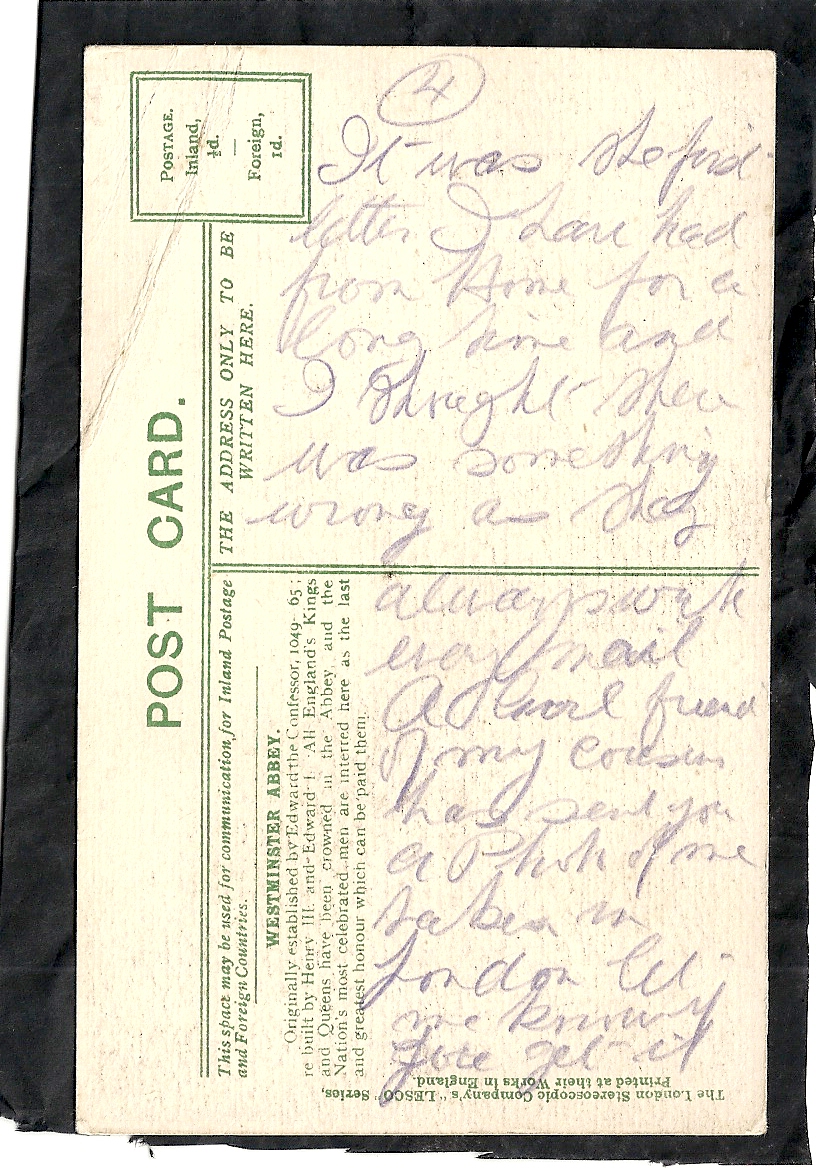 POST CARD.
POSTAGE.
Inland,
½d.
—
Foreign,
1d.
THE ADDRESS ONLY TO BE
WRITTEN HERE.
This space may be used for communication for Inland Postage
and Foreign Countries.
WESTMINSTER ABBEY.
Originally established by Edward the Confessor, 1049-65;
re built by Henry III. and Edward I. All England's Kings
and Queens have been crowned in the Abbey, and the
Nation's most celebrated men are interred here as the last
and greatest honour which can be paid them.
The London Stereoscopic Company's "LESCO" Series,
Printed at their Works in England.
4
It was the first
letter I have had
from Home for a
long time and
I thought there
was something
wrong as they
always write
every mail
A friend
of my cousin
has sent you
a Photo of me
taken in
London let
me know if
you get it